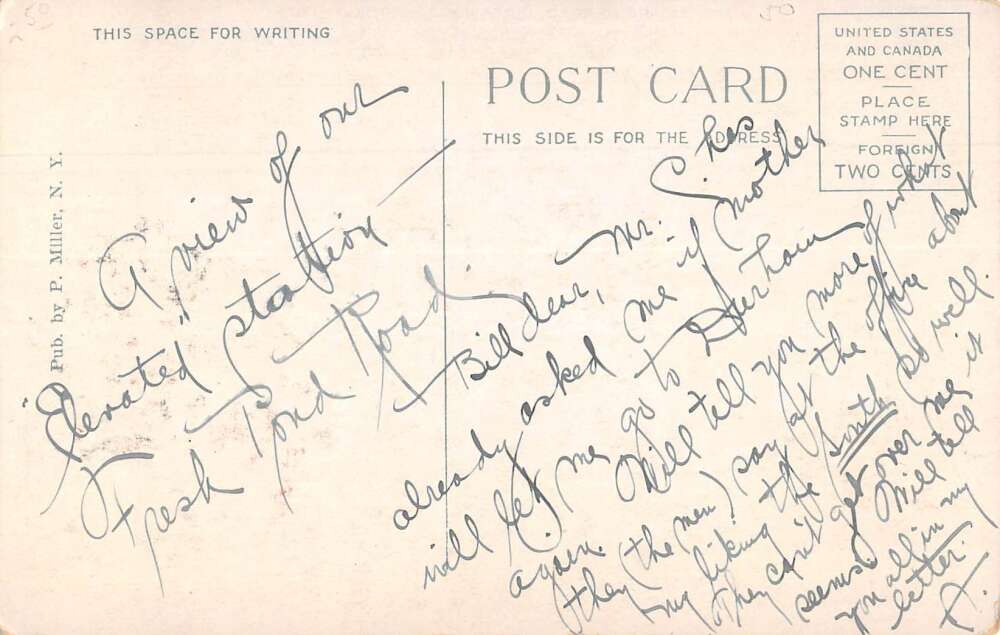 50
50
THIS SPACE FOR WRITING
POST CARD
THIS SIDE IS FOR THE ADDRESS
UNITED STATES
AND CANADA
ONE CENT
PLACE
STAMP HERE
FOREIGN
TWO CENTS
Pub. by P. Miller, N. Y.
A view of our
"Elevated" station -
Fresh Pond Road -
Bill dear, - Mr. S. has
already asked me if mother
will let me go to Durham
again. Will tell you more of what
they (the men) say at the office about
my liking the South so well.
They can't get over me
seems. Will tell it
you all in my
letter.